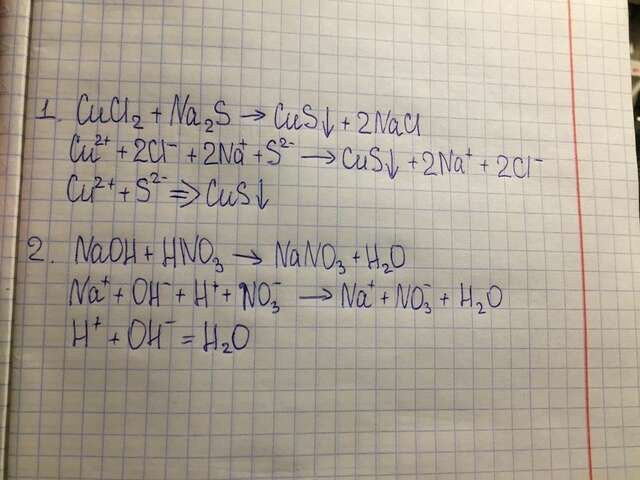 1. CuCl₂ + Na₂S → CuS↓ + 2NaCl
Cu²⁺ + 2Cl⁻ + 2Na⁺ + S²⁻ → CuS↓ + 2Na⁺ + 2Cl⁻
Cu²⁺ + S²⁻ ⇒ CuS↓
2. NaOH + HNO₃ → NaNO₃ + H₂O
Na⁺ + OH⁻ + H⁺ + NO₃⁻ → Na⁺ + NO₃⁻ + H₂O
H⁺ + OH⁻ = H₂O